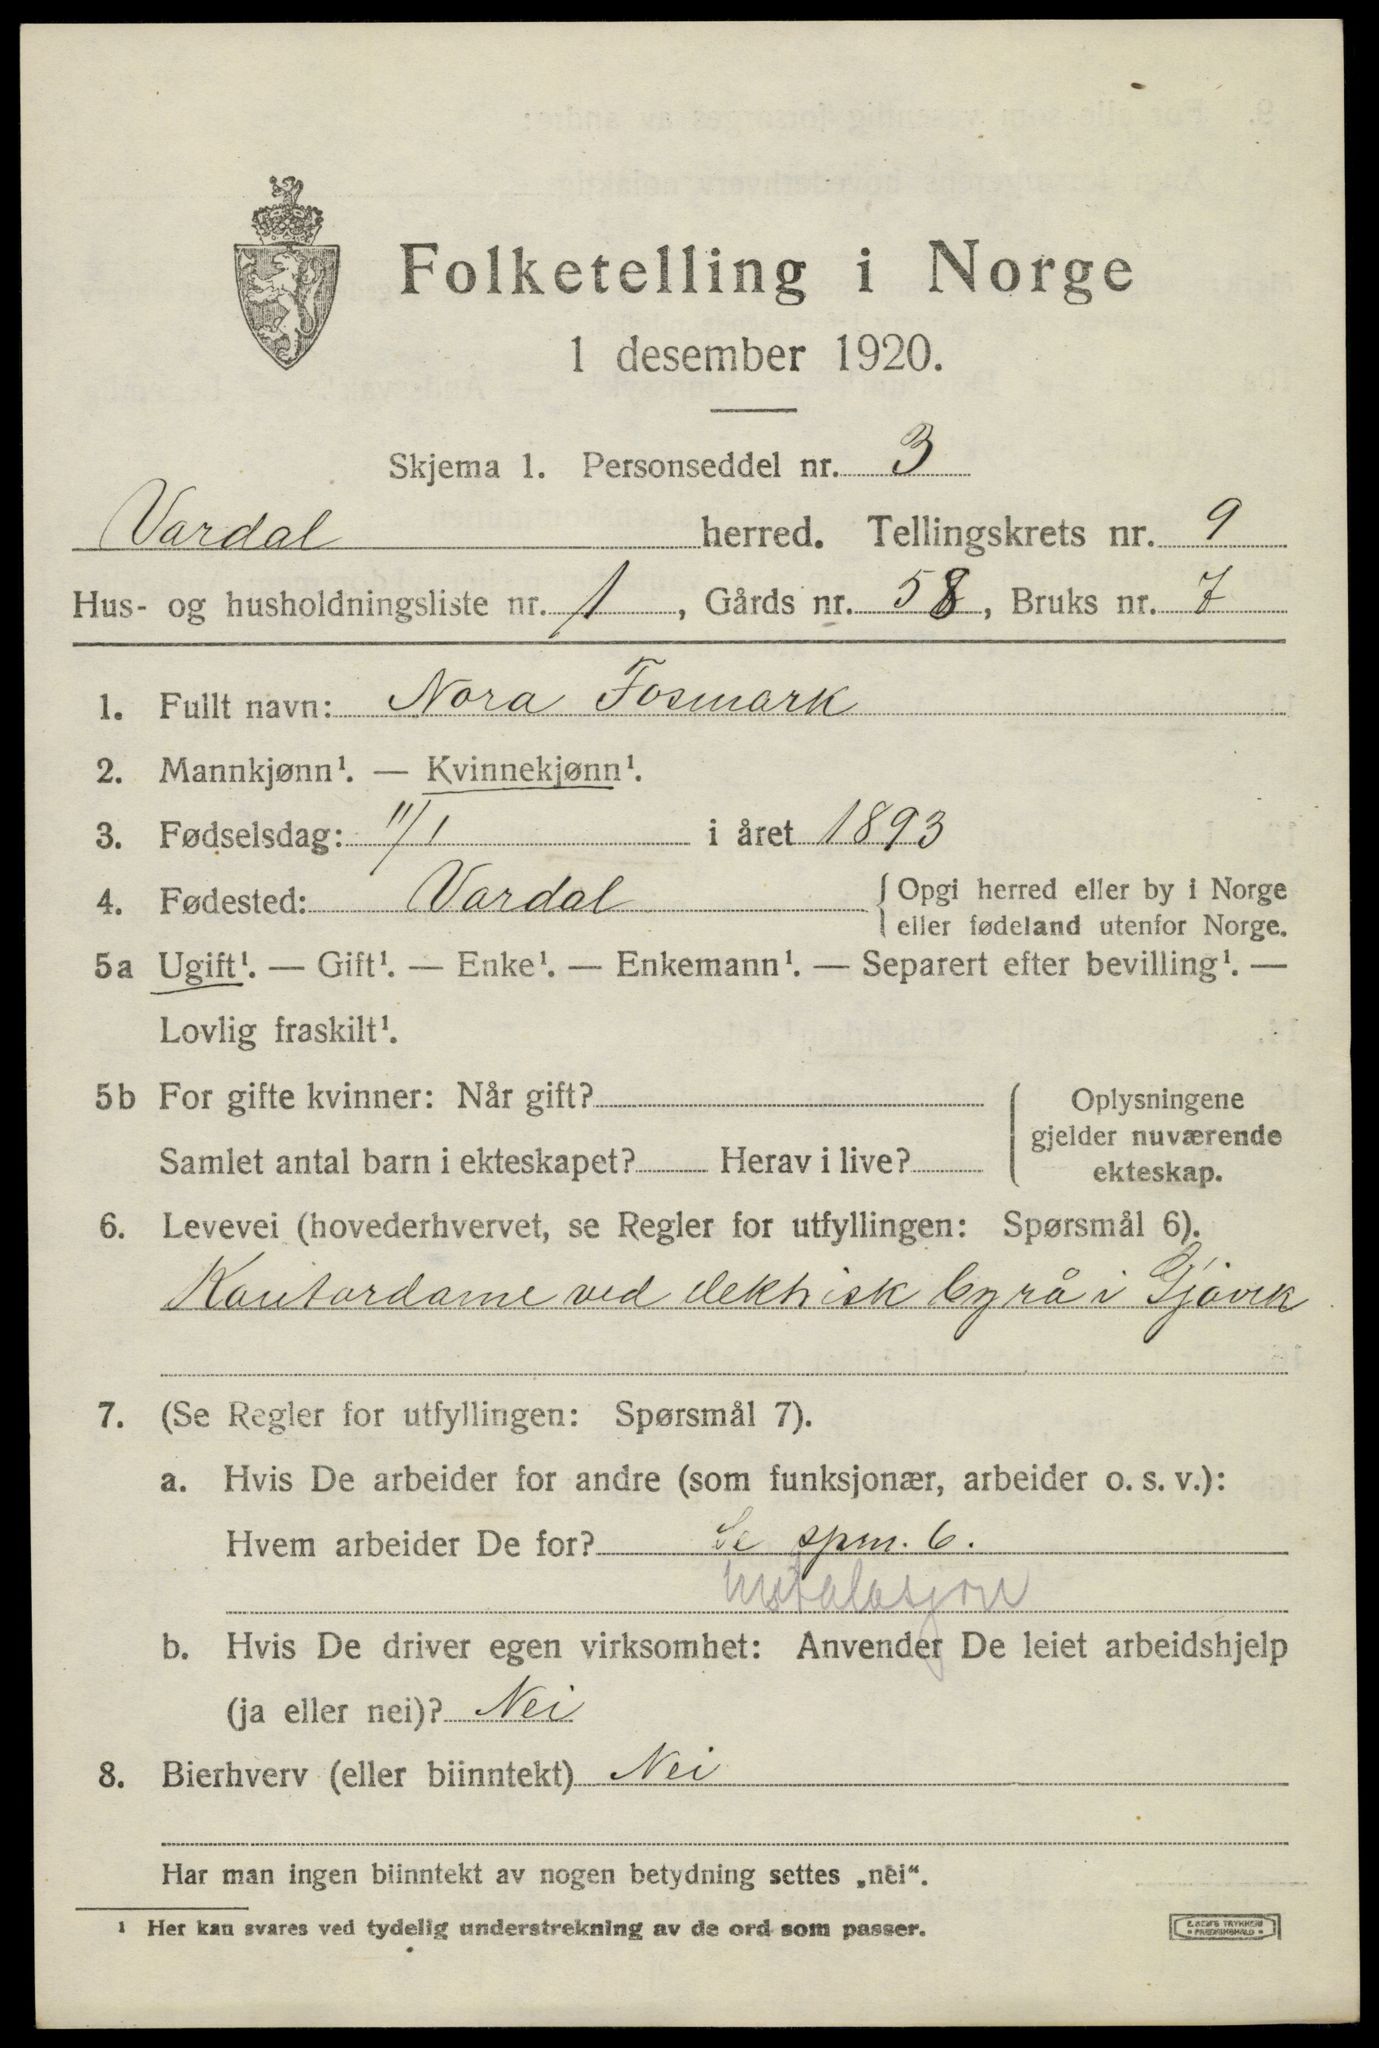 Folketelling i Norge
1 desember 1920.
Skjema 1. Personseddel nr. 3
Vardal herred. Tellingskrets nr. 9
Hus- og husholdningsliste nr. 1, Gårds nr. 58, Bruks nr. 7
1. Fullt navn: Nora Fosmark
2. Mannkjønn¹. — Kvinnekjønn¹.
3. Fødselsdag: 11/1 i året 1893
4. Fødested: Vardal { Opgi herred eller by i Norge
eller fødeland utenfor Norge.
5a Ugift¹. — Gift¹. — Enke¹. — Enkemann¹. — Separert efter bevilling¹. —
Lovlig fraskilt¹.
5b For gifte kvinner: Når gift?
Samlet antal barn i ekteskapet? Herav i live?
Oplysningene
gjelder nuværende
ekteskap.
6. Levevei (hovederhvervet, se Regler for utfyllingen: Spørsmål 6).
Kontordame ved elektrisk byrå i Gjøvik
7. (Se Regler for utfyllingen: Spørsmål 7).
a. Hvis De arbeider for andre (som funksjonær, arbeider o. s. v.):
Hvem arbeider De for? Se spm. 6.
Instalasjon
b. Hvis De driver egen virksomhet: Anvender De leiet arbeidshjelp
(ja eller nei)? Nei
8. Bierhverv (eller biinntekt) Nei
Har man ingen biinntekt av nogen betydning settes „nei“.
¹ Her kan svares ved tydelig understrekning av de ord som passer.